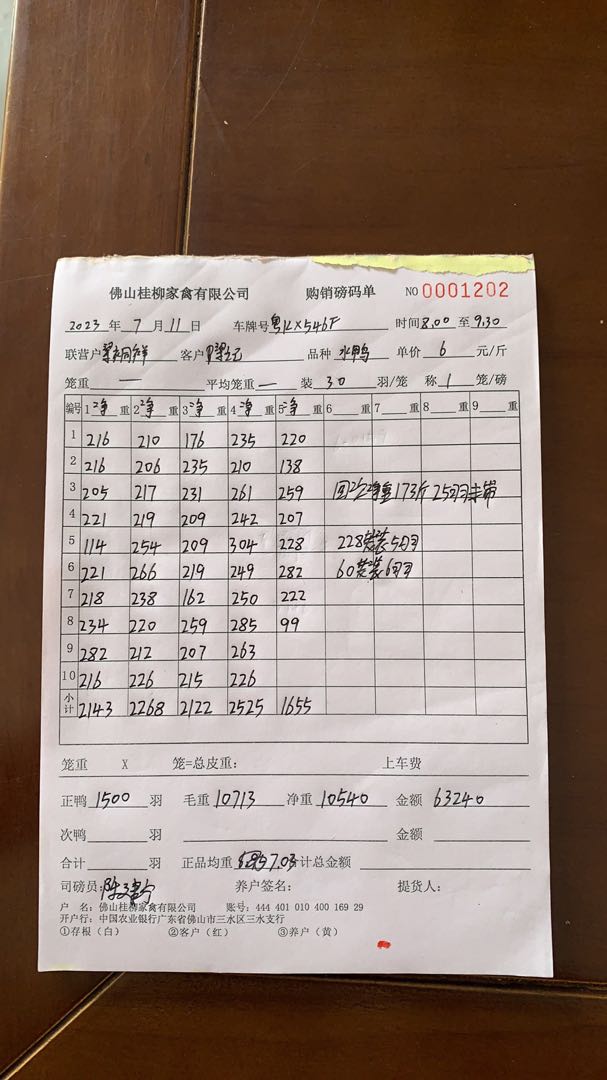 佛山桂柳家禽有限公司 购销磅码单 NO 0001202
2023 年 7 月 11 日 车牌号 粤KX546F 时间 8.00 至 9.30
联营户 客户 品种 水鸭 单价 6 元/斤
笼重 — 平均笼重 — 装 30 羽/笼 称 1 笼/磅
编号 1 净 重 2 净 重 3 净 重 4 净 重 5 净 重 6 重 7 重 8 重 9 重
1 216 210 176 235 220
2 216 206 235 210 138
3 205 217 231 261 259 回 173斤 25羽
4 221 219 209 242 207
5 114 254 209 304 228 228 装5羽
6 221 266 219 249 282 60 装6羽
7 218 238 162 250 222
8 234 220 259 285 99
9 282 212 207 263
10 216 226 215 226
小计 2143 2268 2122 2525 1655
笼重 X 笼=总皮重: 上车费
正鸭 1500 羽 毛重 10713 净重 10540 金额 63240
次鸭 羽 金额
合计 羽 正品均重 7.03 合计总金额
司磅员: 养户签名: 提货人:
户 名: 佛山桂柳家禽有限公司 账号: 444 401 010 400 169 29
开户行: 中国农业银行广东省佛山市三水区三水支行
①存根(白) ②客户(红) ③养户(黄)